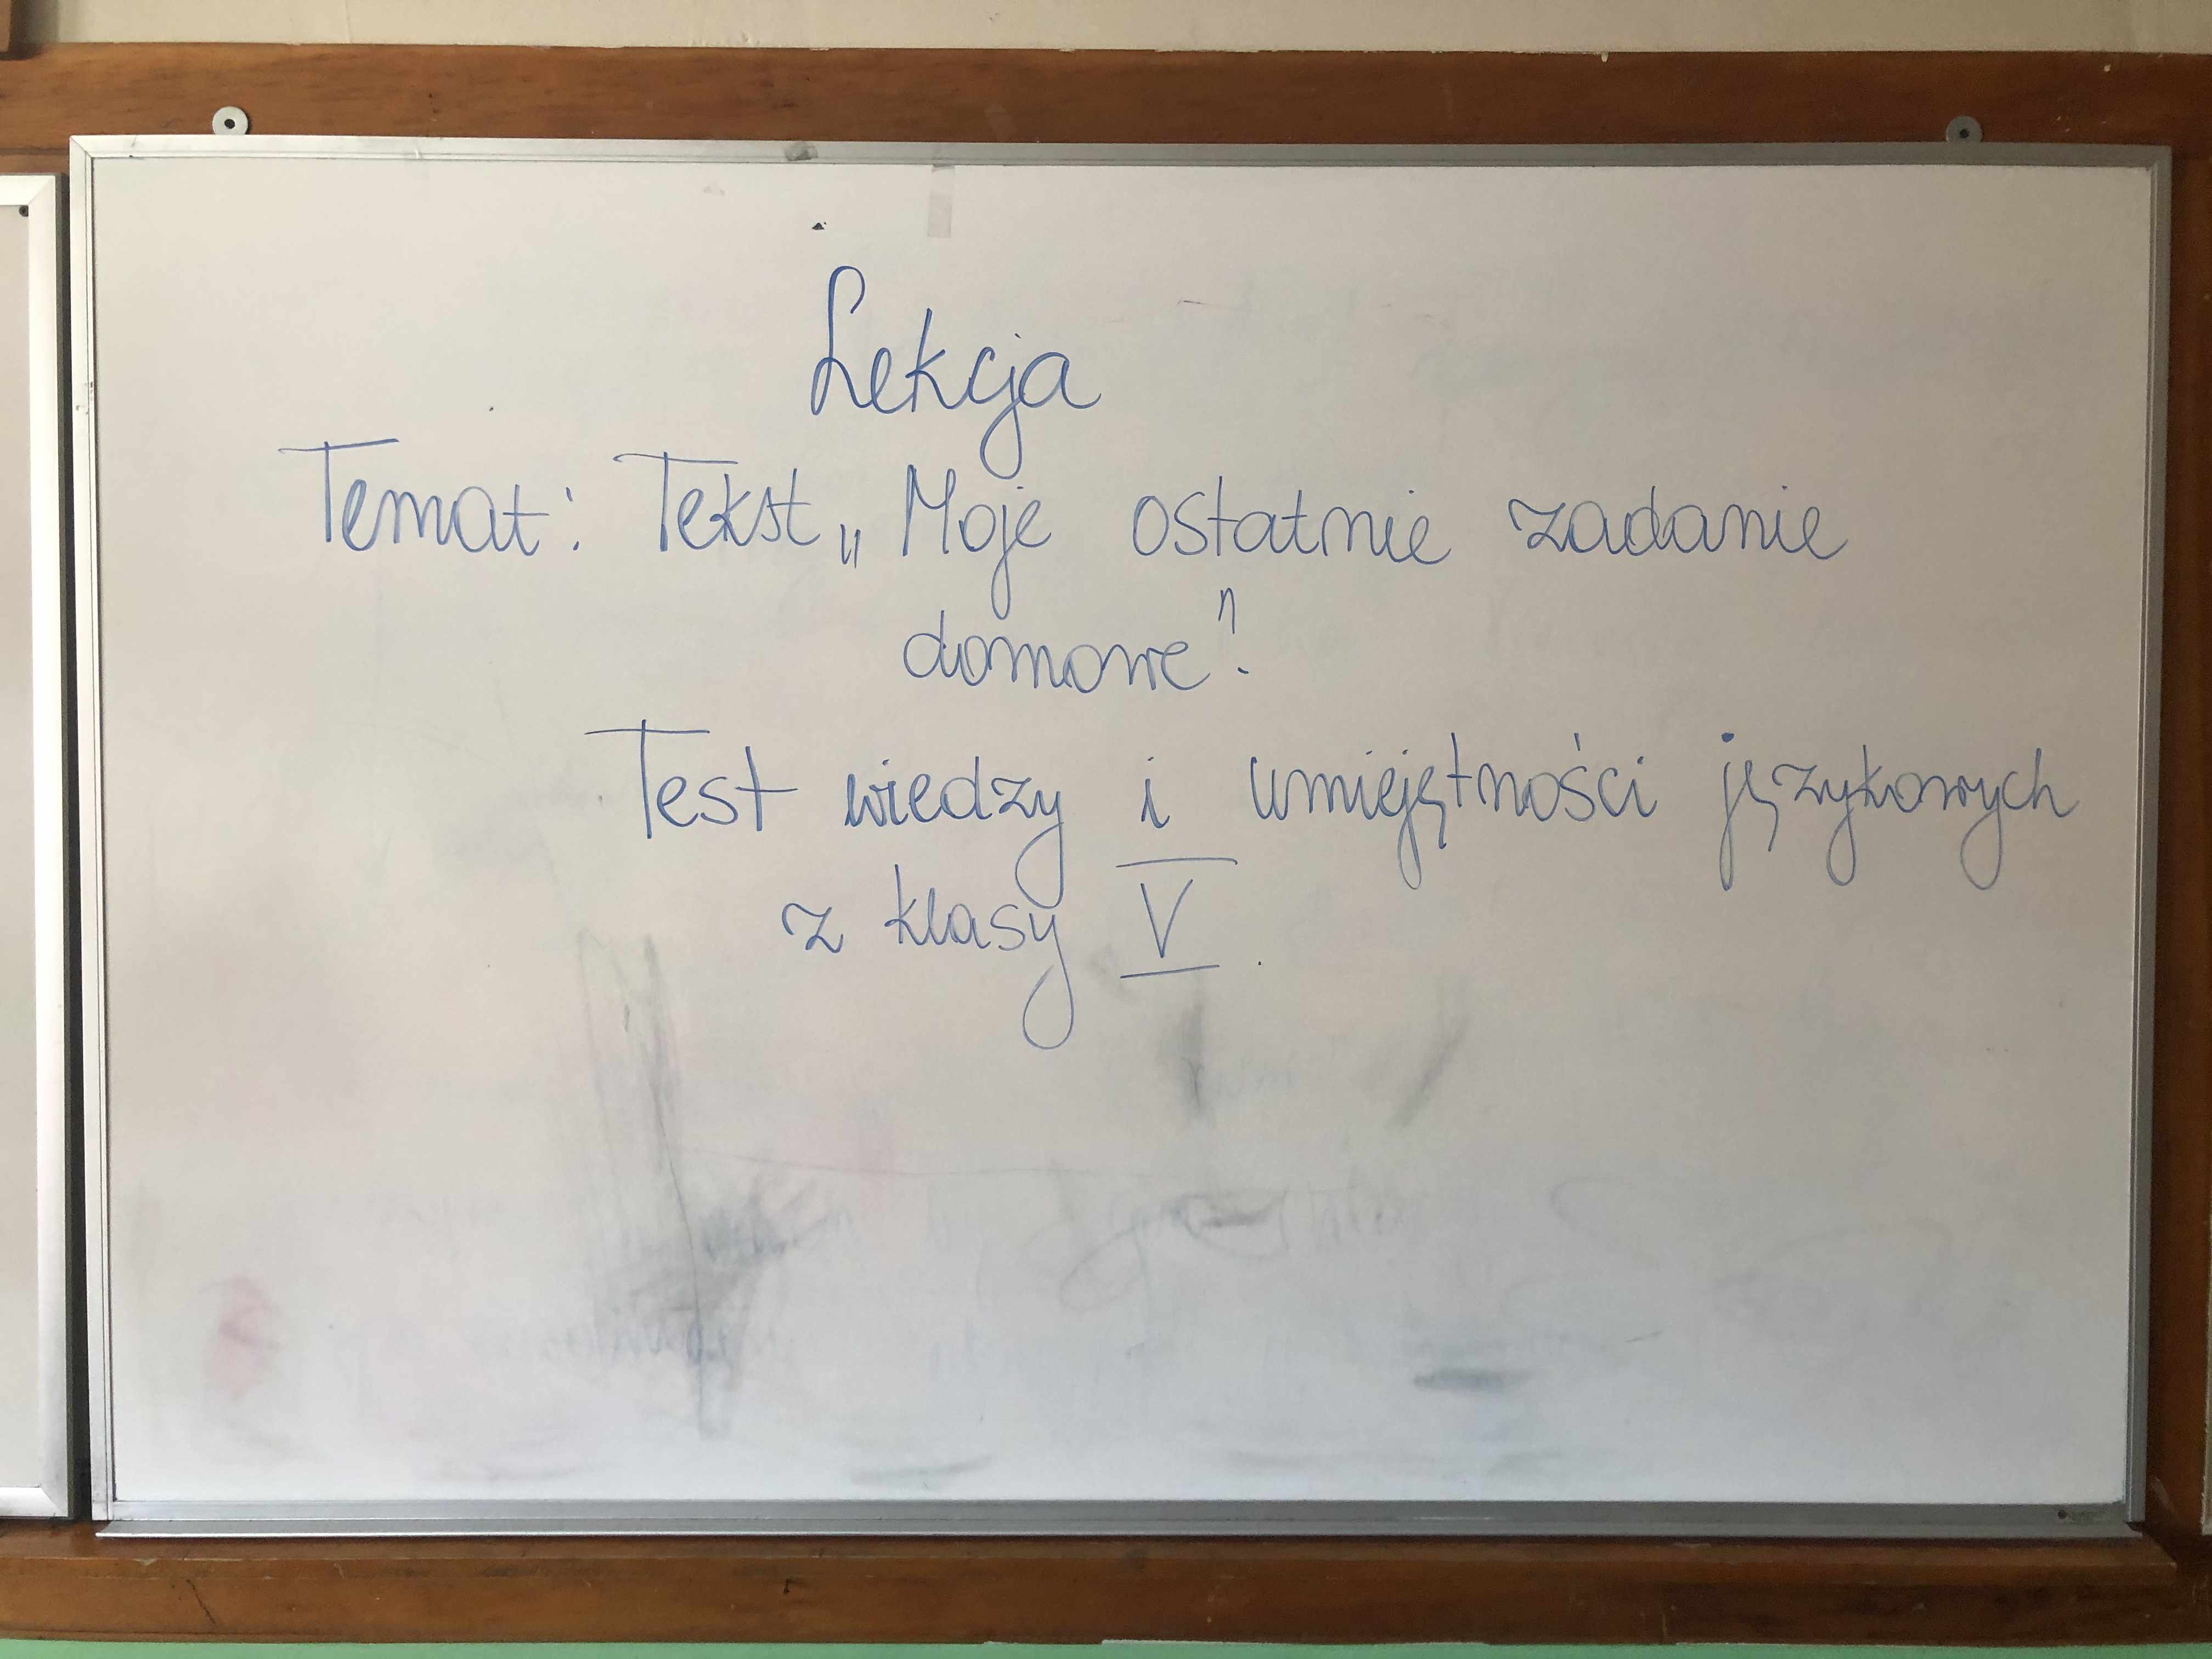 Lekcja
Temat: Tekst „Moje ostatnie zadanie
domowe".
Test wiedzy i umiejętności językowych
z klasy V.